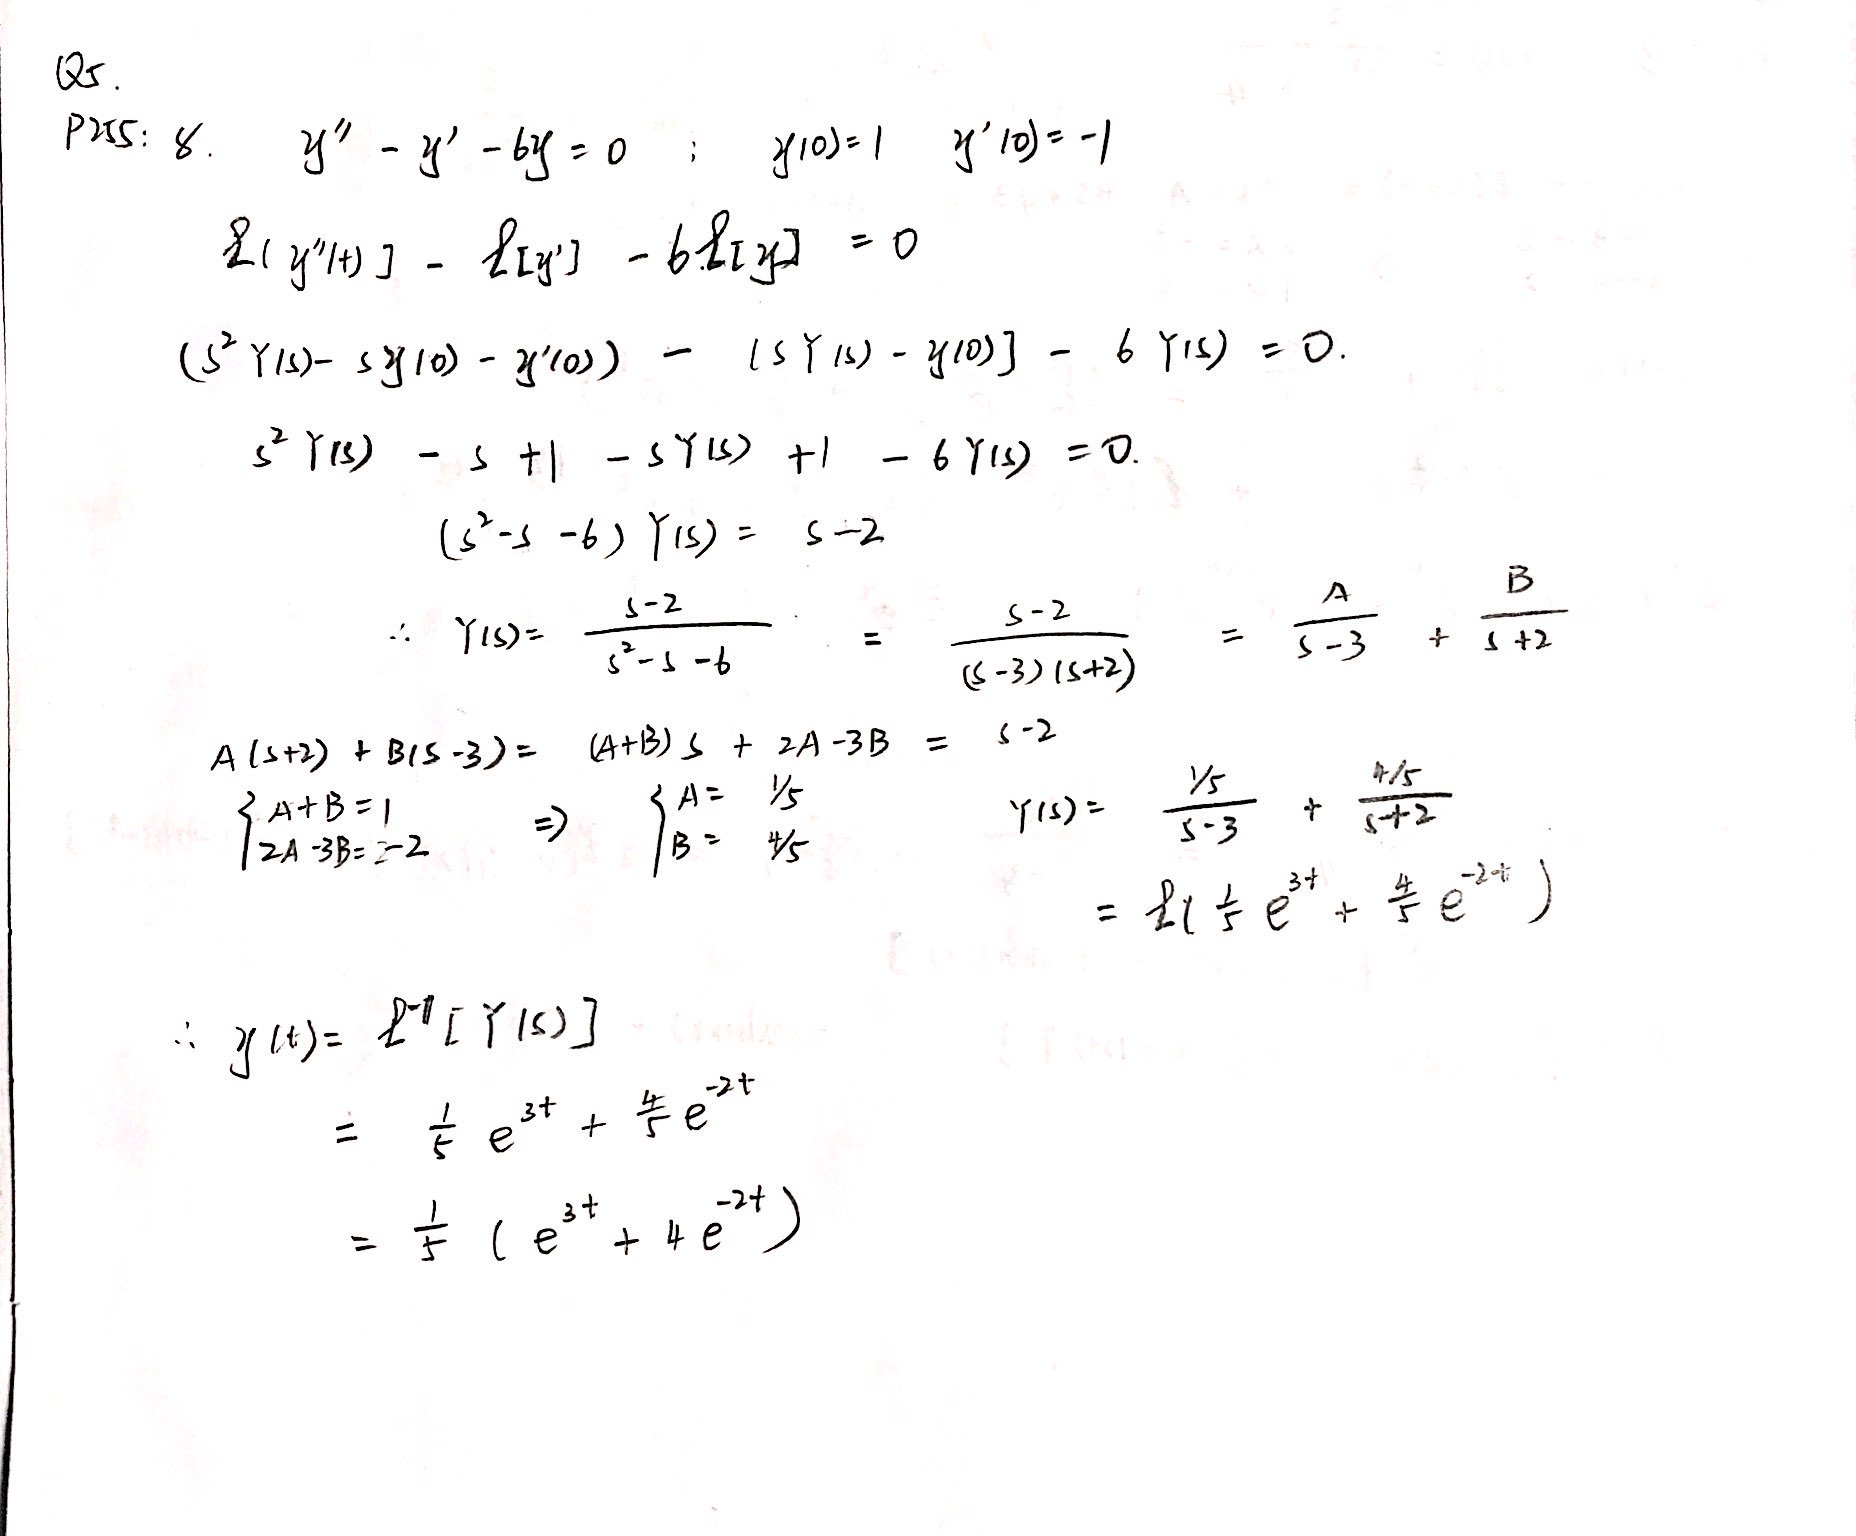 Q5.
P255: 8. y'' - y' - 6y = 0 ; y(0)=1 y'(0)= -1
ℒ[y''(t)] - ℒ[y'] - 6ℒ[y] = 0
(s² Y(s) - s y(0) - y'(0)) - [s Y(s) - y(0)] - 6 Y(s) = 0.
s² Y(s) - s +1 - s Y(s) +1 - 6 Y(s) = 0.
(s² - s - 6) Y(s) = s-2
∴ Y(s) = (s-2)/(s² - s - 6) = (s-2)/((s-3)(s+2)) = A/(s-3) + B/(s+2)
A(s+2) + B(s-3) = (A+B)s + 2A-3B = s-2
{ A+B=1 ⇒ { A = 1/5 Y(s) = (1/5)/(s-3) + (4/5)/(s+2)
2A-3B=-2 B = 4/5
= ℒ(1/5 e^{3t} + 4/5 e^{-2t})
∴ y(t) = ℒ⁻¹[Y(s)]
= 1/5 e^{3t} + 4/5 e^{-2t}
= 1/5 (e^{3t} + 4e^{-2t})